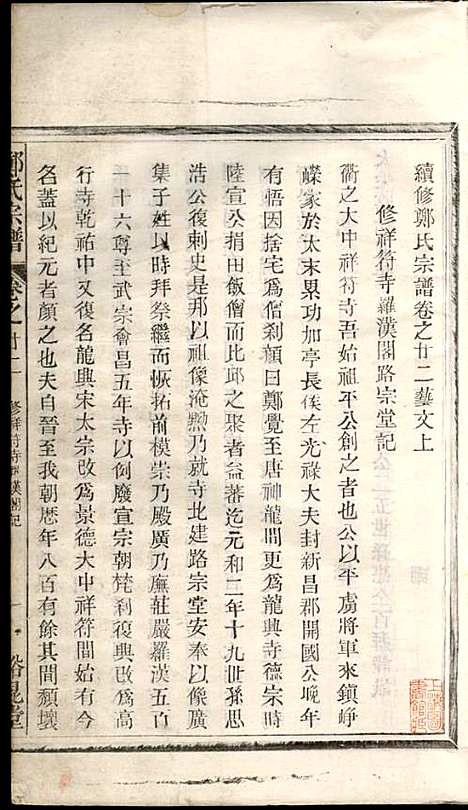 續修鄭氏宗譜卷之廿二藝文上
修祥符寺羅漢閣路宗堂記
衢之大中祥符寺吾始祖平公創之者也公以平虜將軍來鎮崢
嶸家於太末累功加亭長侯左光祿大夫封新昌郡開國公晚年
有悟因捨宅爲僧剎顏曰鄭覺至唐神龍間更爲龍興寺德宗時
陸宣公捐田飯僧而比邱之聚者益蕃迄元和二年十九世孫思
浩公復刺史是邦以祖像淹黝乃就寺北建路宗堂安奉以像廣
集子姓以時拜祭繼而恢拓前模崇乃殿廣乃廡莊嚴羅漢五百
一十六尊至武宗會昌五年寺以例廢宣宗朝梵剎復興改爲高
行寺乾祐中又復名龍興宋太宗改爲景德大中祥符間始有今
名蓋以紀元者顏之也夫自晉至我朝歷年八百有餘其間頹壞
鄭氏宗譜 卷之廿二 修祥符寺羅漢閣記 一